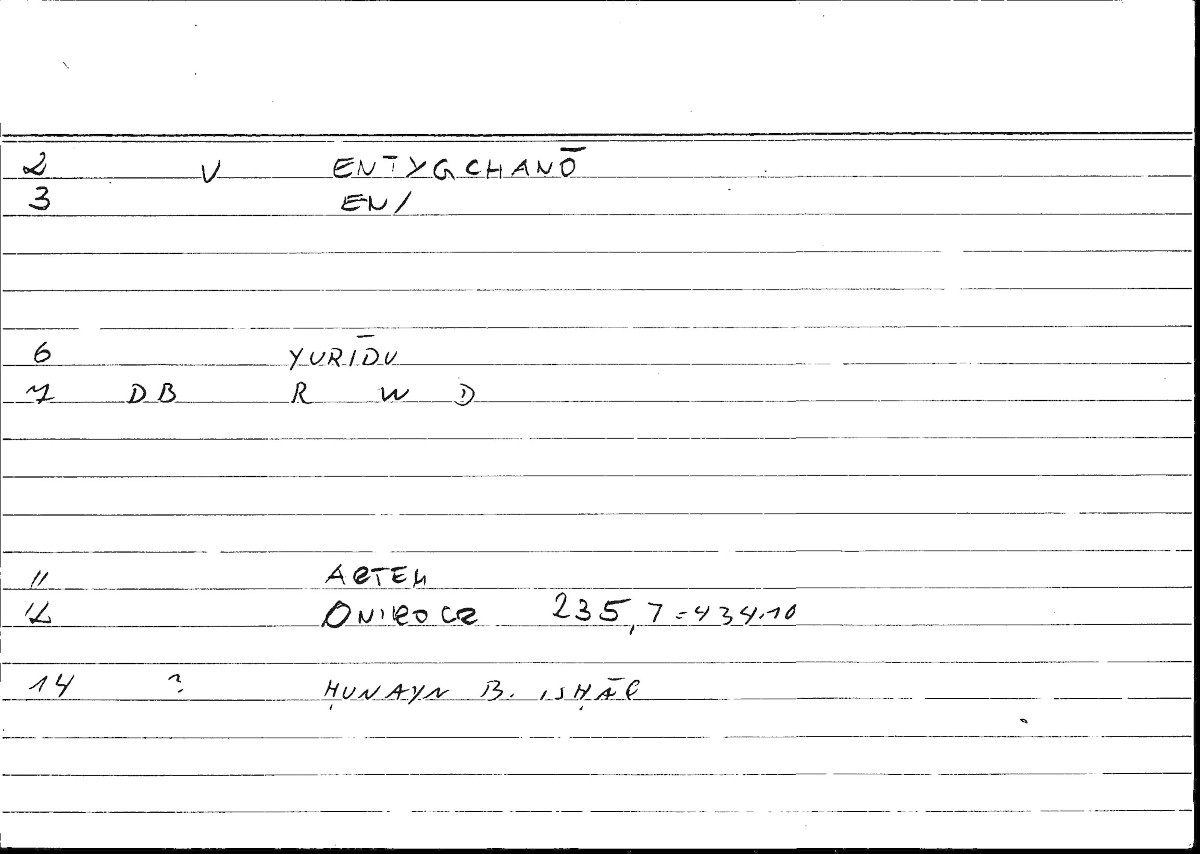 2 V ENTYGCHANŌ
3 EN/
6 YURĪDU
7 DB R W D
11 ARTEM
12 ONIROCR 235,7=434.10
14 ? ḤUNAYN B. ISḤĀQ